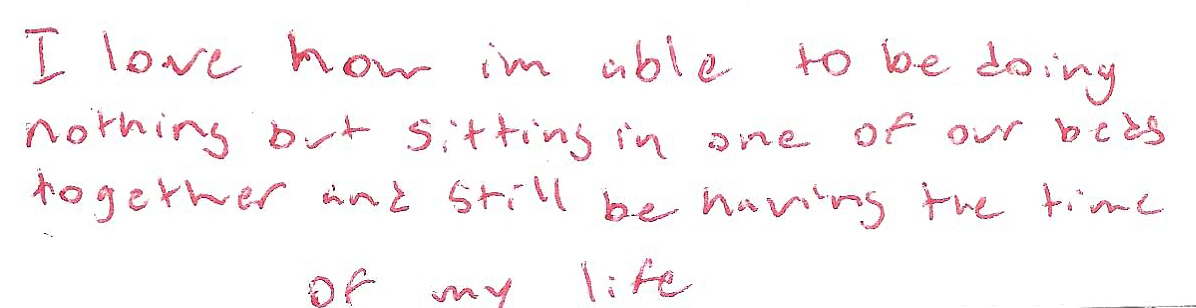 I love how im able to be doing
nothing but sitting in one of our beds
together and still be having the time
of my life